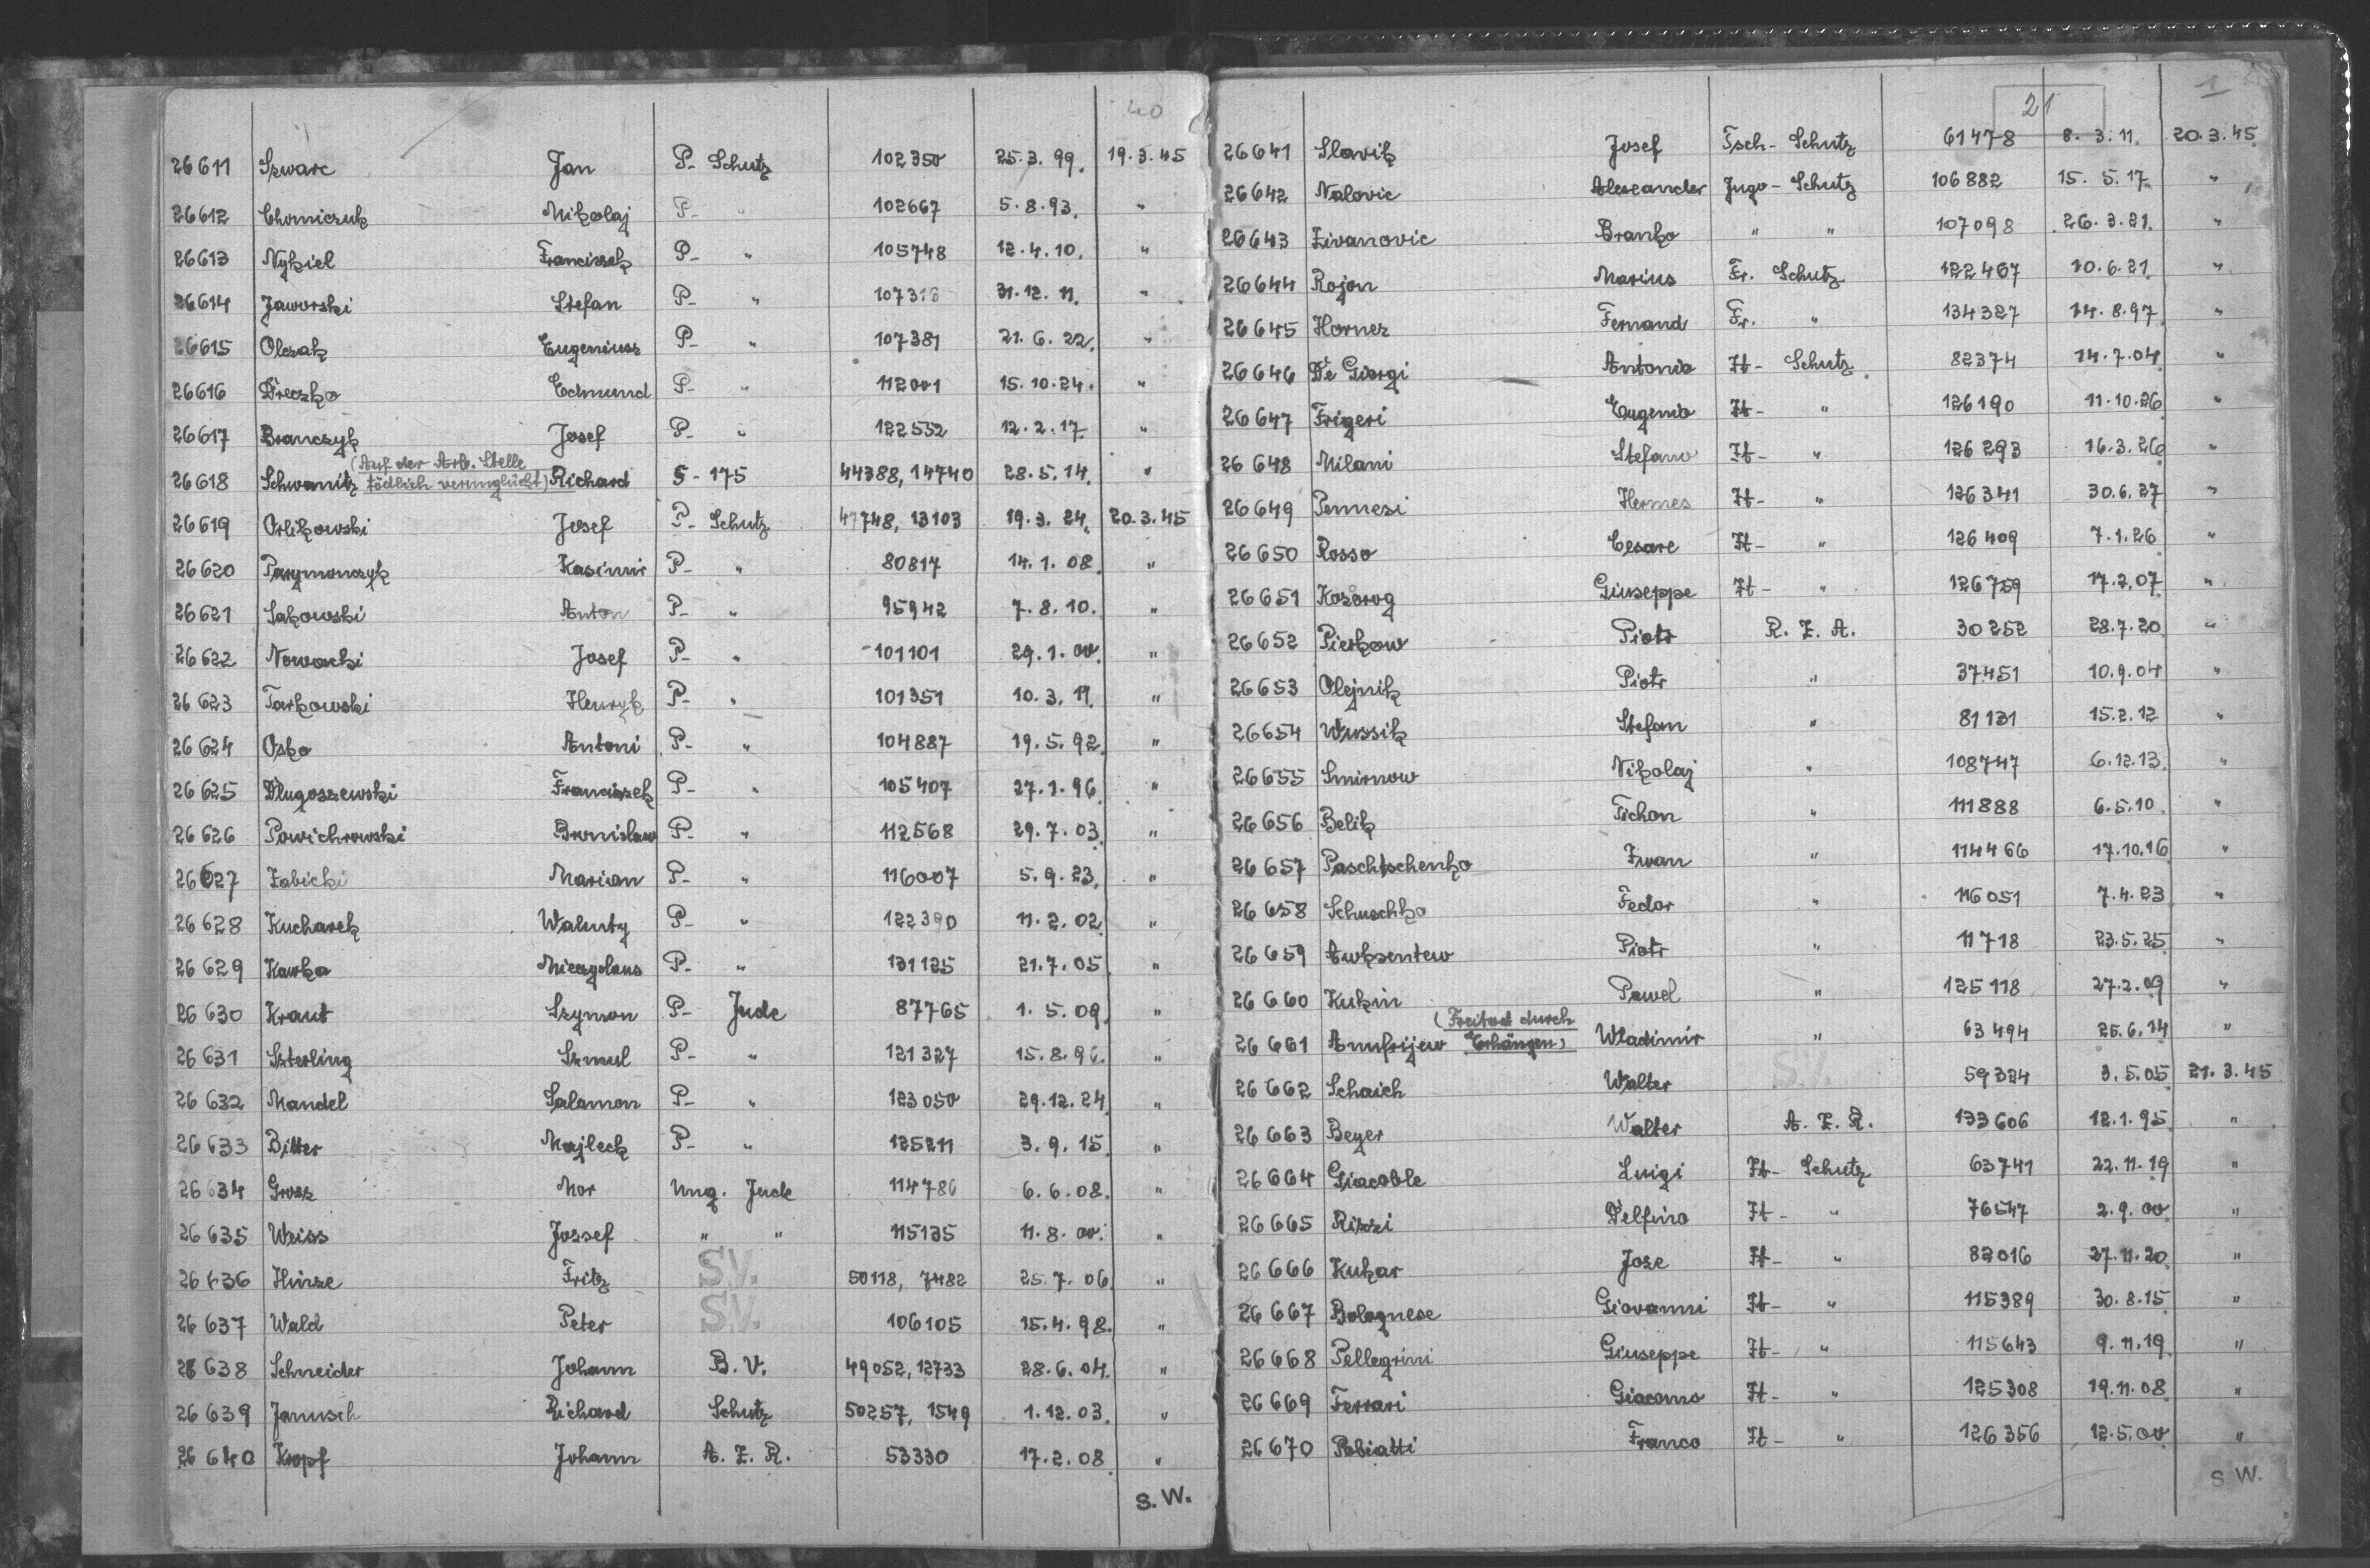 40
26611 Szwarc Jan P- Schutz 102350 25.3.99. 19.3.45
26612 Chomiczuk Mikolaj P- " 102667 5.8.93. "
26613 Nykiel Francissek P- " 105748 12.4.10. "
26614 Jaworski Stefan P- " 107318 31.12.11. "
26615 Olczak Eugeniusz P- " 107381 21.6.22. "
26616 Dreczko Edmund P- " 112001 15.10.24. "
26617 Branczyk Josef P- " 122552 12.2.17. "
(Auf der Arb. Stelle
26618 Schwanitz tödlich verunglückt) Richard § - 175 44388, 14740 28.5.14. "
26619 Orlikowski Josef P- Schutz 47748, 13103 19.3.24. 20.3.45
26620 Parymonczyk Kasimir P- " 80817 14.1.08. "
26621 Sakowski Anton P- " 95942 7.8.10. "
26622 Nowacki Josef P- " 101101 29.1.00. "
26623 Tarkowski Henryk P- " 101351 10.3.11. "
26624 Osko Antoni P- " 104887 19.5.92. "
26625 Dlugoszewski Franciszek P- " 105407 27.1.96. "
26626 Powichrowski Bronislaw P- " 112568 29.7.03. "
26627 Zabicki Marian P- " 116007 5.9.23. "
26628 Kucharek Walenty P- " 122390 11.2.02. "
26629 Kawka Mieczyslaus P- " 131125 21.7.05. "
26630 Kraut Szymon P- Jude 87765 1.5.09. "
26631 Szterling Szmul P- " 121327 15.8.96. "
26632 Mandel Salamon P- " 123050 29.12.24. "
26633 Bitter Majleck P- " 125211 3.9.15. "
26634 Grosz Mor Ung. Jude 114786 6.6.08. "
26635 Weiss Jozsef " " 115135 11.8.00. "
26636 Hinze Fritz S.V. 50118, 7482 25.7.06. "
26637 Wald Peter S.V. 106105 15.4.98. "
26638 Schneider Johann B.V. 49052, 12733 28.6.04. "
26639 Janusch Richard Schutz 50257, 1549 1.12.03. "
26640 Kropf Johann A.Z.R. 53330 17.2.08. "
S.W.
21
1
26641 Slavik Josef Tsch- Schutz 61478 8.3.11. 20.3.45.
26642 Nalovic Alexander Jugo- Schutz 106882 15.5.17. "
26643 Zivanovic Branko " " 107098 26.3.21. "
26644 Rojon Marius Fr. Schutz 122467 10.6.21. "
26645 Horner Fernand Fr. " 134327 14.8.97. "
26646 De Giorgi Antonio It- Schutz 82374 14.7.04. "
26647 Frigeri Eugenio It- " 126190 11.10.26. "
26648 Milani Stefano It- " 126293 16.3.26 "
26649 Pennesi Hermes It- " 126341 30.6.27 "
26650 Rosso Cesare It- " 126409 7.1.26 "
26651 Kosorog Giuseppe It- " 126759 17.2.07 "
26652 Pierkow Piotr R.Z.A. 30252 28.7.20. "
26653 Olejnik Piotr " 37451 10.9.04 "
26654 Wussik Stefan " 81131 15.2.12 "
26655 Smirnow Nikolaj " 108747 6.12.13. "
26656 Belik Tichon " 111888 6.5.10. "
26657 Paschtschenko Iwan " 114466 17.10.16 "
26658 Schuschko Fedor " 116051 7.4.23 "
26659 Awksentew Piotr " 11718 23.5.25 "
26660 Kukin Pawel " 125118 27.2.09 "
(Freitod durch
26661 Anufrijew Erhängen) Wladimir " 63494 25.6.14 "
26662 Schaich Walter S.V. 59324 3.5.05 21.3.45
26663 Beyer Walter A.Z.R. 133606 12.1.95. "
26664 Giacoble Luigi It- Schutz 63741 22.11.19 "
26665 Rizzi Delfino It- " 76547 2.9.00. "
26666 Kukar Joze It- " 82016 27.11.20. "
26667 Bolognese Giovanni It- " 115389 30.8.15. "
26668 Pellegrini Giuseppe It- " 115643 9.11.19. "
26669 Ferrari Giacomo It- " 125308 19.11.08. "
26670 Pobiatti Franco It- " 126356 12.5.00. "
S W.